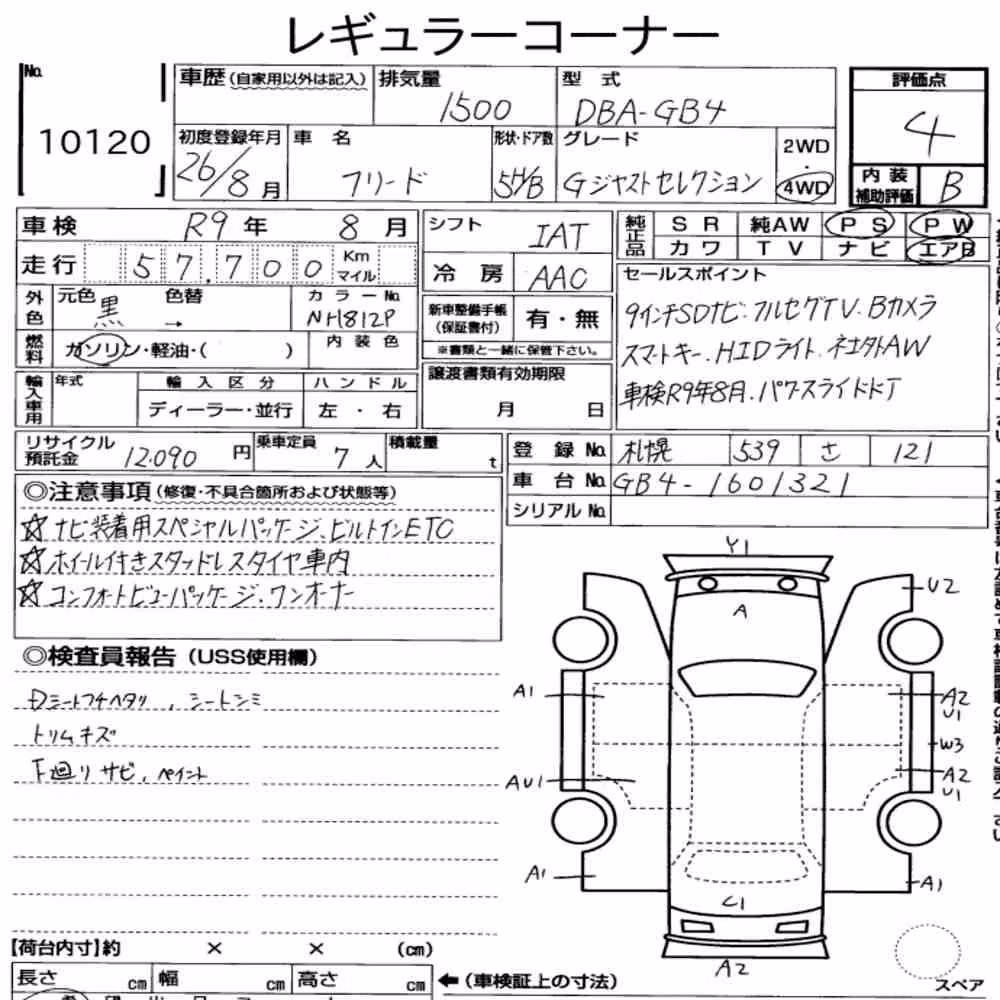 レギュラーコーナー
No.
10120
車歴(自家用以外は記入)
排気量
1500
型 式
DBA-GB4
評価点
4
初度登録年月
26/8月
車 名
フリード
形状・ドア数
5H/B
グレード
Gジャストセレクション
2WD
・
4WD
内装
補助評価
B
車検 R9年 8月
走行 57,700 Km マイル
外色
元色 黒
色替 →
カラーNo.
NH812P
燃料
ガソリン・軽油・( )
内装色
輸入車用
年式
輸入区分
ディーラー・並行
ハンドル
左 ・ 右
シフト
IAT
冷房
AAC
新車整備手帳
(保証書付)
有・無
※書類と一緒に保管下さい。
譲渡書類有効期限
月 日
純正品
SR 純AW PS PW
カワ TV ナビ エアB
セールスポイント
9インチSDナビ.フルセグTV.Bカメラ
スマートキー.HIDライト.ネ土外AW
車検R9年8月.パワースライドドア
リサイクル
預託金
12.090円
乗車定員
7人
積載量
t
登録No. 札幌 539 さ 121
車台No. GB4-1601321
シリアルNo.
◎注意事項(修復・不具合箇所および状態等)
☆ナビ装着用スペシャルパッケージ、ビルトインETC
☆ホイール付きスタッドレスタイヤ車内
☆コンフォートビューパッケージ.ワンオーナー
◎検査員報告(USS使用欄)
Dシートフチヘタリ、シートシミ
トリムキズ
下廻りサビ、ペイント
Y1
A
U2
A1
A2
U1
W3
AU1
A2
U1
A1
A1
C1
A2
スペア
【荷台内寸】約 × × (cm)
長さ cm 幅 cm 高さ cm
←(車検証上の寸法)